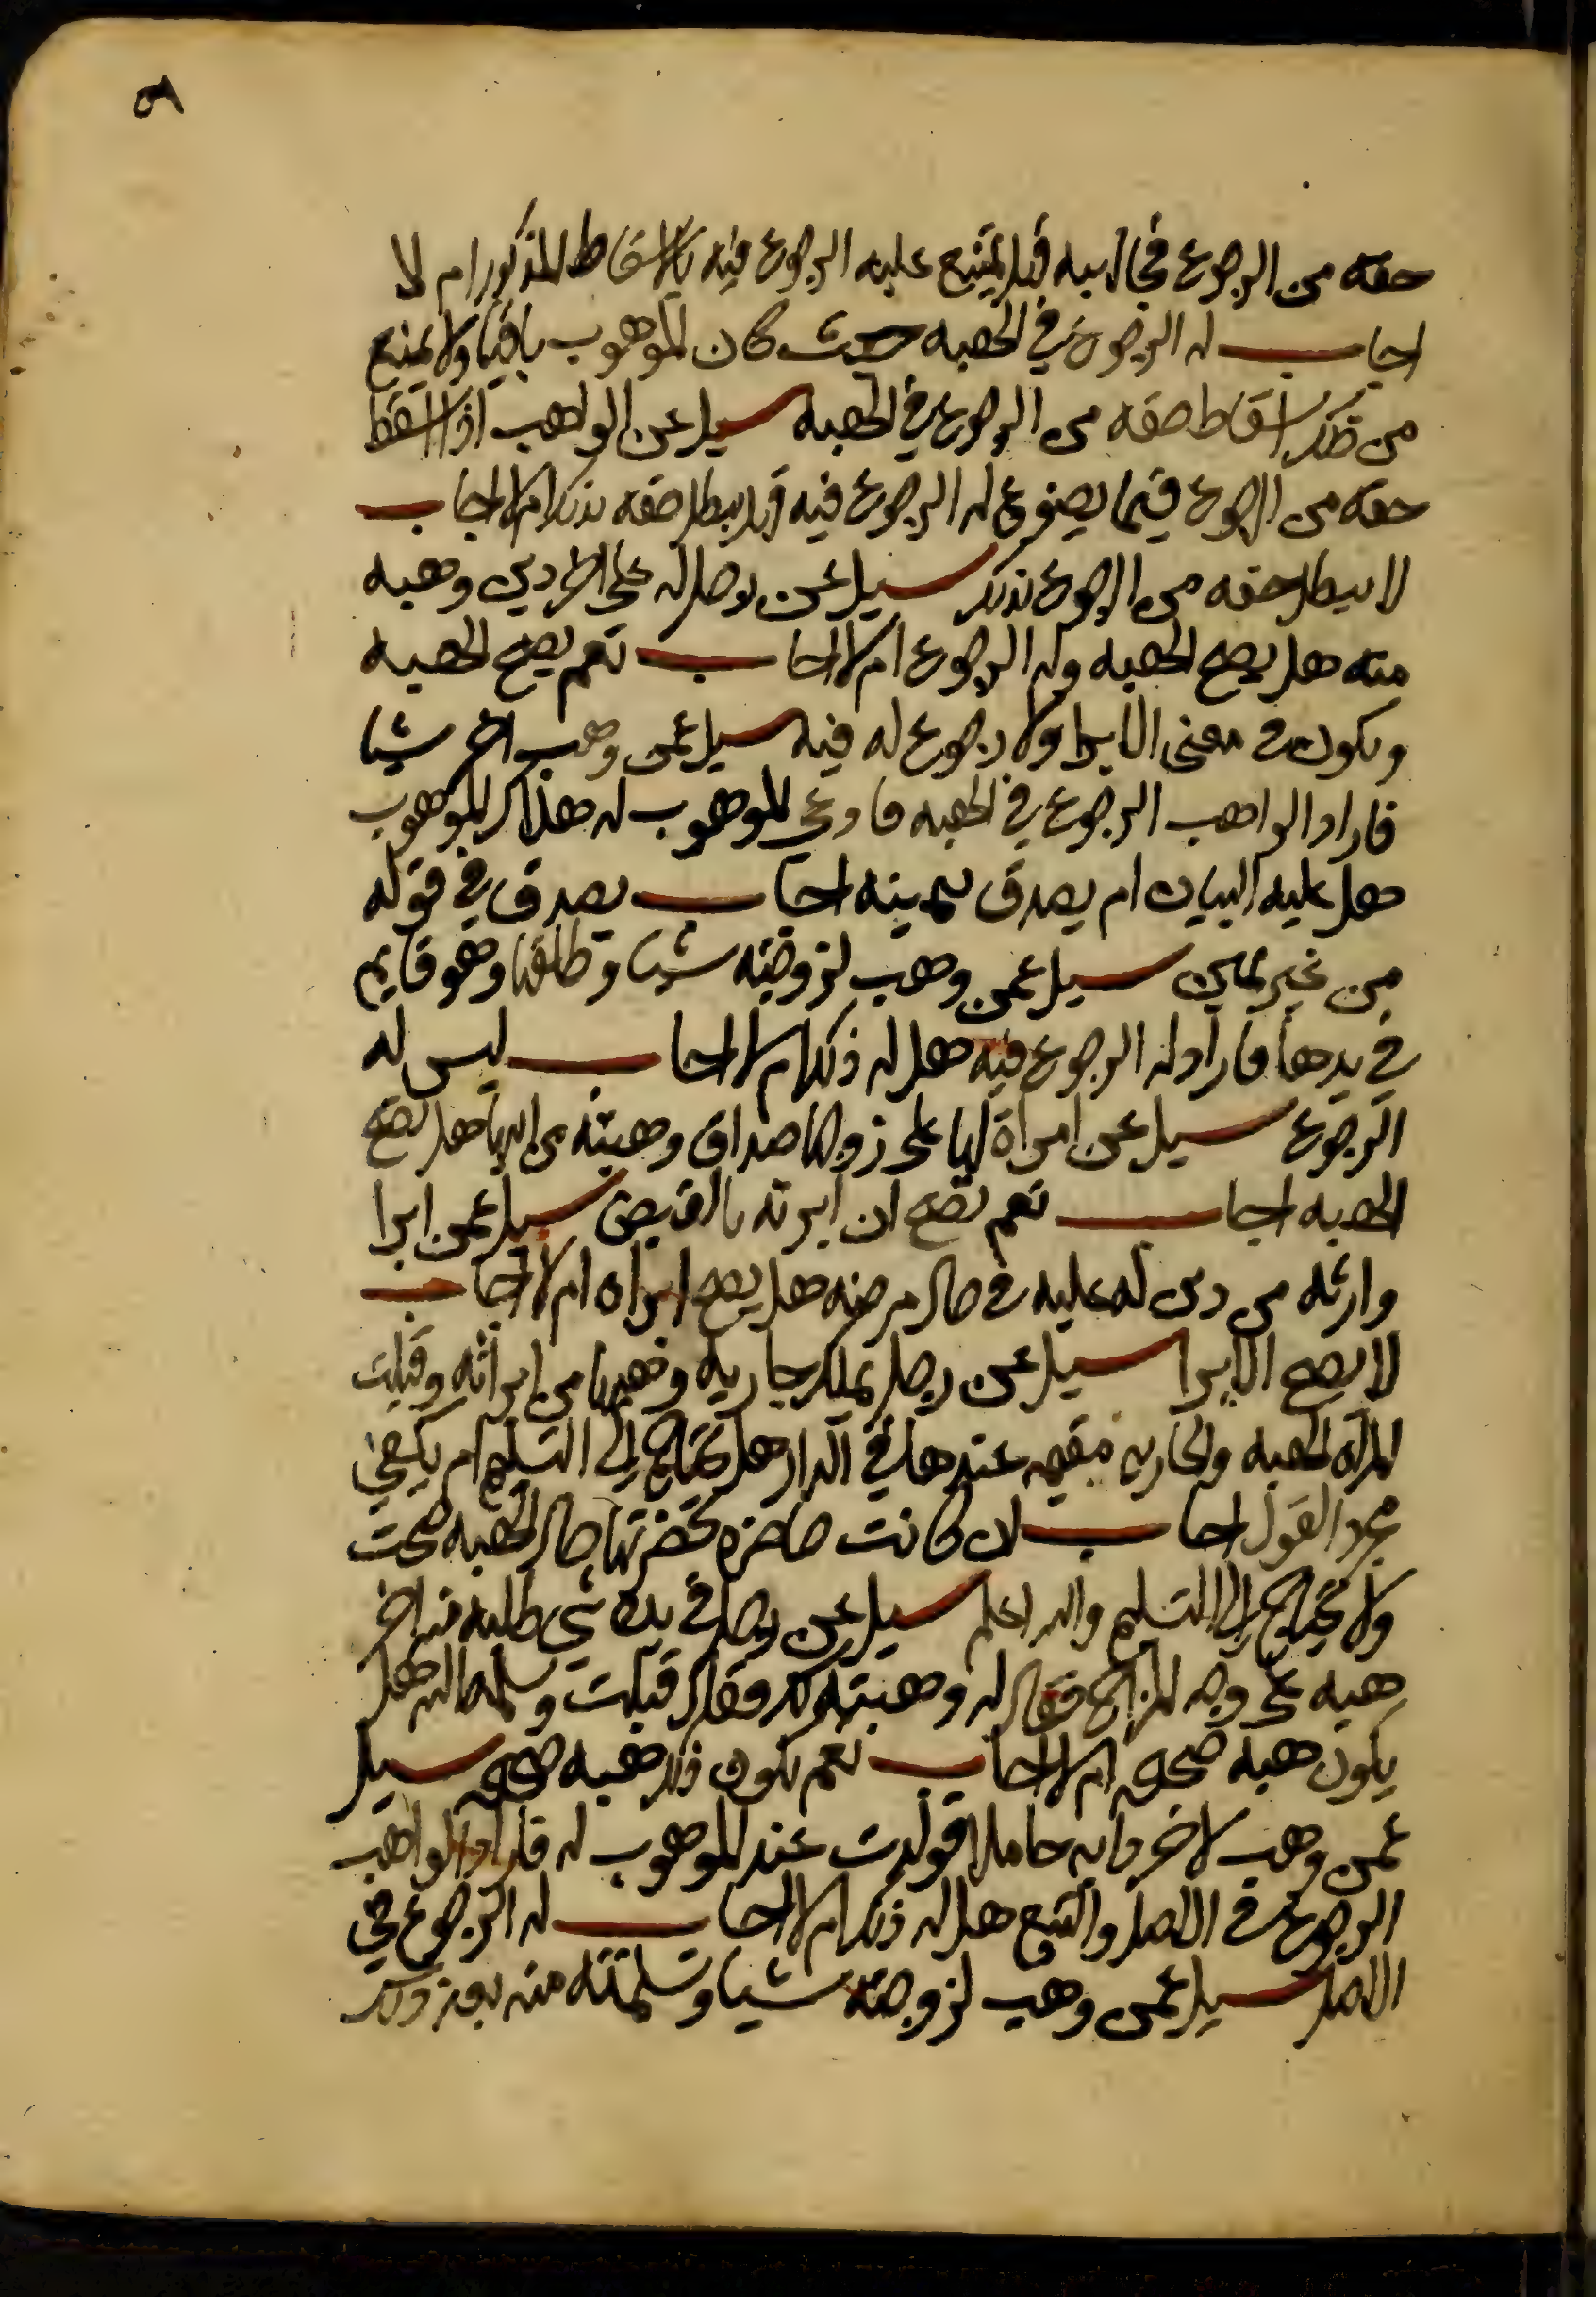 ٥٨
حقه من الرجوع في الهبه فهل يمتنع عليه الرجوع فيه بالاسقاط المذكور ام لا
اجاب له الرجوع في الهبه حيث كان الموهوب باقيا ولا يمنع
من ذلك اسقاط حقه من الرجوع في الهبه سيل عن الواهب اذا اسقط
حقه من الرجوع فيما يصوغ له الرجوع فيه هل يبطل حقه بذلك ام لا اجاب
لا يبطل حقه من الرجوع بذلك سيل عن رجل له على اخر دين وهبه
منه هل يصح الهبه وله الرجوع ام لا اجاب نعم يصح الهبه
ويكون في معنى الابرا ولا رجوع له فيه سيل عمن وهب اخر شيا
فاراد الواهب الرجوع في الهبه فادعى الموهوب له هلاك الموهوب
هل عليه البيان ام يصدق بيمينه اجاب يصدق في قوله
من غير يمين سيل عمن وهب لزوجته شيا وطلقها وهو قايم
في يدها فاراد له الرجوع فيه هل له ذلك ام لا اجاب ليس له
الرجوع سيل عن امراة لها على زوجها صداق وهبته من ابيها هل تصح
الهبه اجاب نعم تصح ان امرته بالقبض سيل عمن ابرا
وارثه من دين له عليه في حال مرضه هل يصح ابراه ام لا اجاب
لا يصح الابرا سيل عن رجل يملك جاريه وهبها من امراته وقبلت
المراه الهبه والجاريه مقيمه عندها في الدار هل يحتاج الى التسليم ام يكفي
مجرد القول اجاب ان كانت حاضره بحضرتها حال الهبه صحت
ولا يحتاج الى التسليم والله اعلم سيل عن رجل في يده شي طلبه منه اخر
هبه على وجه المزاح فقال له وهبته لك وقال قبلت وسلمه اليه هل
يكون هبه صحيحه ام لا اجاب نعم يكون ذلك هبه صحيحه سيل
عمن وهب لاخر دابه حاملا فولدت عند الموهوب له فاراد الواهب
الرجوع في الاصل والتبع هل له ذلك ام لا اجاب له الرجوع في
الاصل سيل عمن وهب لزوجته شيا وتسلمته منه بعد ذلك